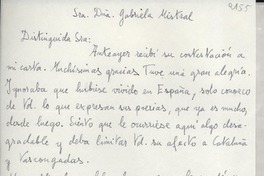 9155
Sra. Dña. Gabriela Mistral
Distinguida Sra:
Anteayer recibí su contestación a
mi carta. Muchísimas gracias. Tuve una gran alegría.
Ignoraba que hubiese vivido en España, solo conozco
de Vd. lo que expresan sus poesías, que ya es mucho,
desde luego. Siento que le ocurriese aquí algo desa-
gradable y deba limitar Vd. su afecto a Cataluña
y Vascongadas.